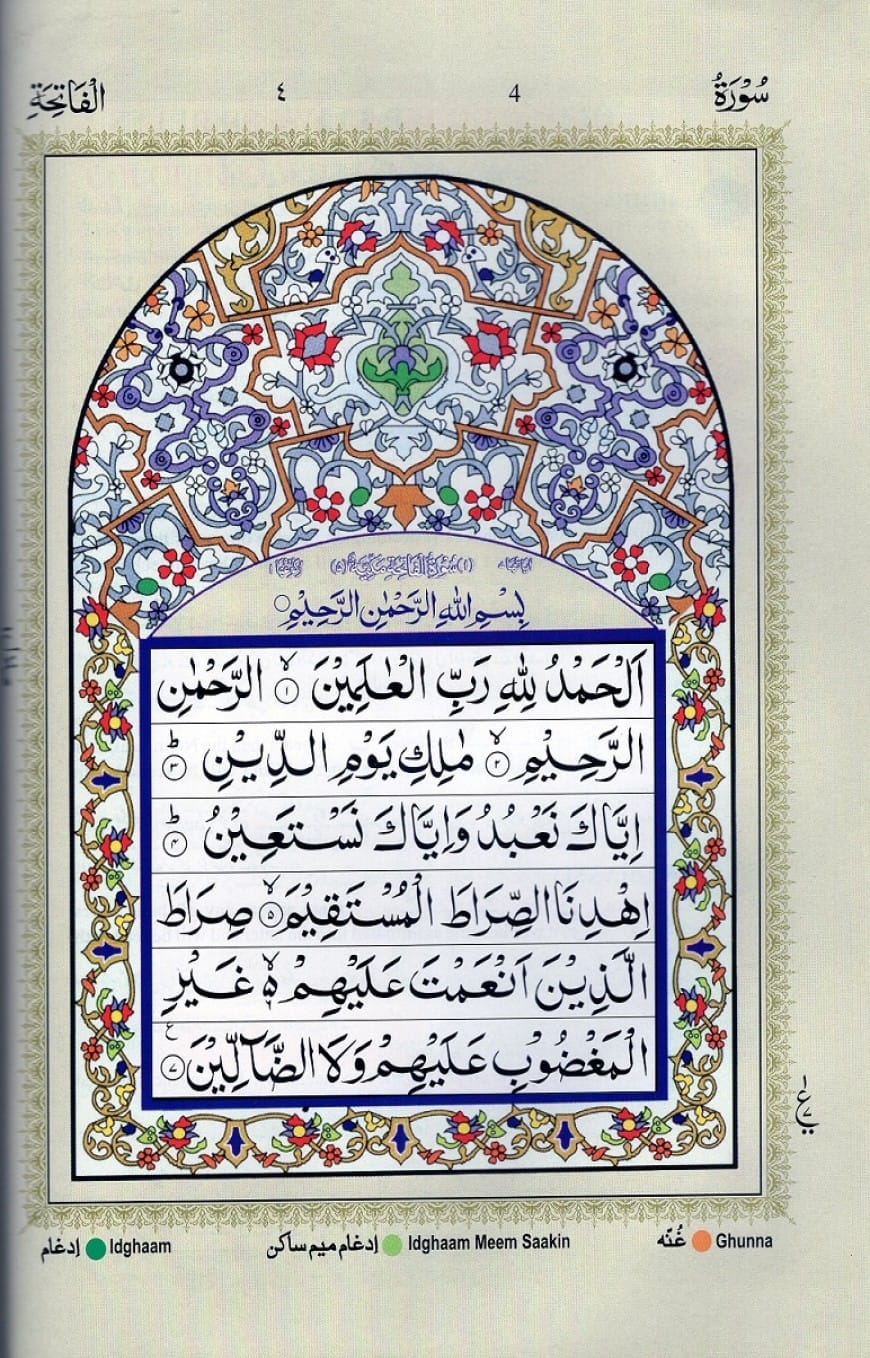 سُوْرَةُ 4 ٤ الْفَاتِحَةِ
اٰيَاتُهَا ٧ (١) سُوْرَةُ الْفَاتِحَةِ مَكِّيَّةٌ (٥) رُكُوْعُهَا ١
بِسْمِ اللّٰهِ الرَّحْمٰنِ الرَّحِيْمِ
اَلْحَمْدُ لِلّٰهِ رَبِّ الْعٰلَمِيْنَ ۙ‏ ﴿۱﴾ الرَّحْمٰنِ
الرَّحِيْمِ ۙ‏ ﴿۲﴾ مٰلِكِ يَوْمِ الدِّيْنِ ؕ‏ ﴿۳﴾
اِيَّاكَ نَعْبُدُ وَاِيَّاكَ نَسْتَعِيْنُ ؕ‏ ﴿۴﴾
اِهْدِنَا الصِّرَاطَ الْمُسْتَقِيْمَ ۙ‏ ﴿۵﴾ صِرَاطَ
الَّذِيْنَ اَنْعَمْتَ عَلَيْهِمْ ۙ۬ۦ غَيْرِ
الْمَغْضُوْبِ عَلَيْهِمْ وَلَا الضَّآلِّيْنَ ﴿۷﴾ ع
إدغام Idghaam إدغام ميم ساكن Idghaam Meem Saakin غُنّه Ghunna